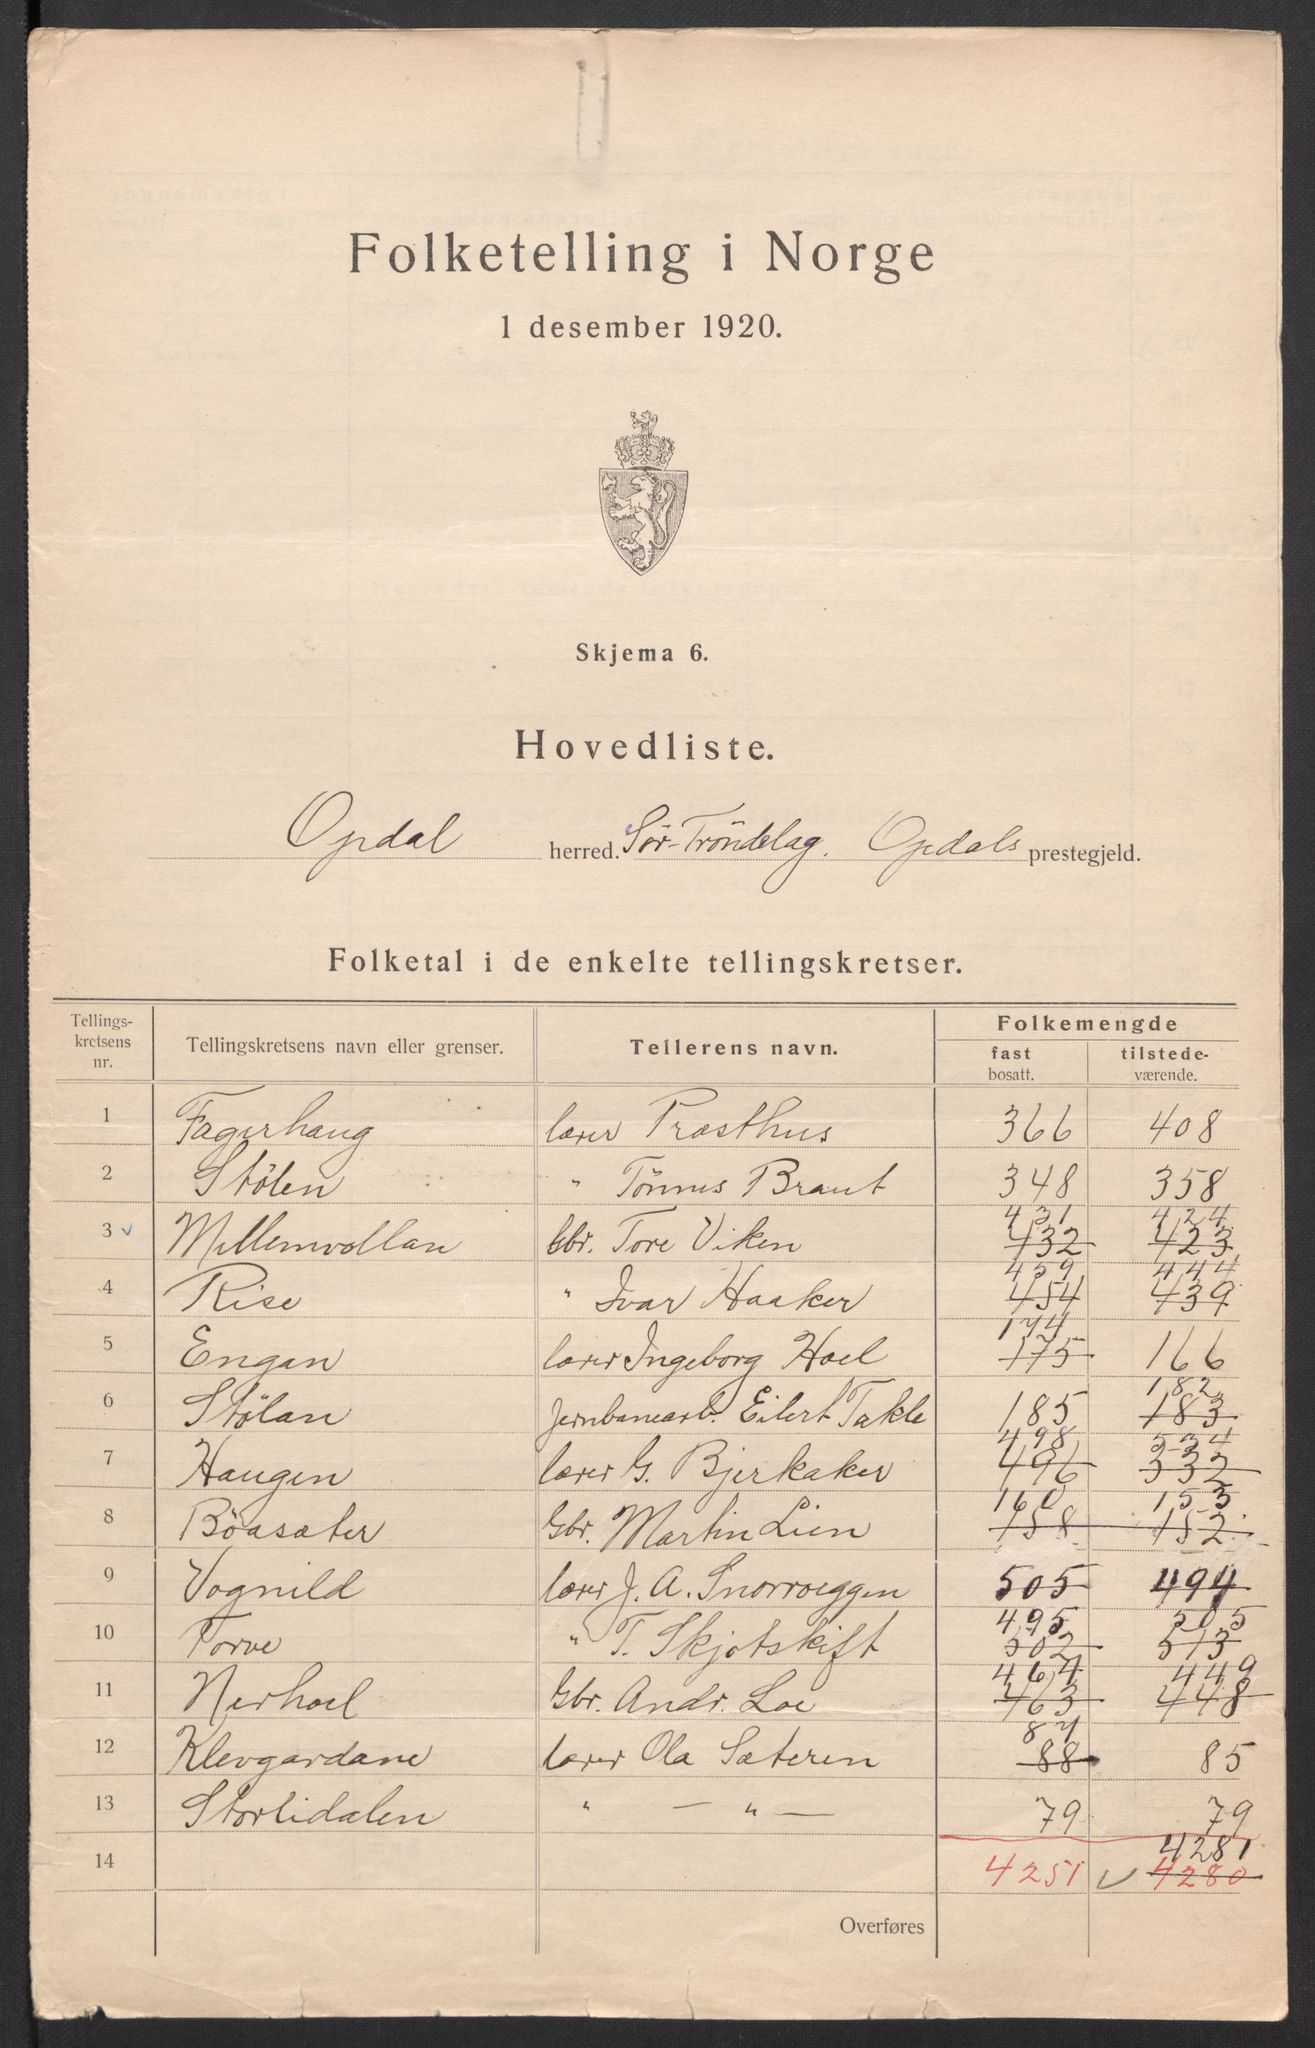 Folketelling i Norge
1 desember 1920.
Skjema 6.
Hovedliste.
Opdal herred. Sør-Trøndelag. Opdals prestegjeld.
Folketal i de enkelte tellingskretser.
Tellings-
kretsens
nr.
Tellingskretsens navn eller grenser.
Tellerens navn.
Folkemengde
fast
bosatt.
tilstede-
værende.
1 Fagerhaug lærer Præsthus 366 408
2 Stølen " Tønnes Braut 348 358
431 424
3 Mellemvollan Gbr. Tore Viken 432 423
459 444
4 Rise " Ivar Haaker 454 439
174
5 Engan lærer Ingeborg Hoel 175 166
182
6 Stølan Jernbanearb. Eilert Takle 185 183
498 534
7 Haugen lærer G. Bjerkaker 496 532
160 153
8 Böasæter Gbr. Martin Lien 158 152
9 Vognild lærer J. A. Snorroeggen 505 494
495 505
10 Torve " T. Skjøtskift 502 513
464 449
11 Nerhoel Gbr. Andr. Loe 463 448
87
12 Klevgardane lærer Ola Sæteren 88 85
13 Storlidalen " — " — 79 79
4281
14 4251 4280
Overføres